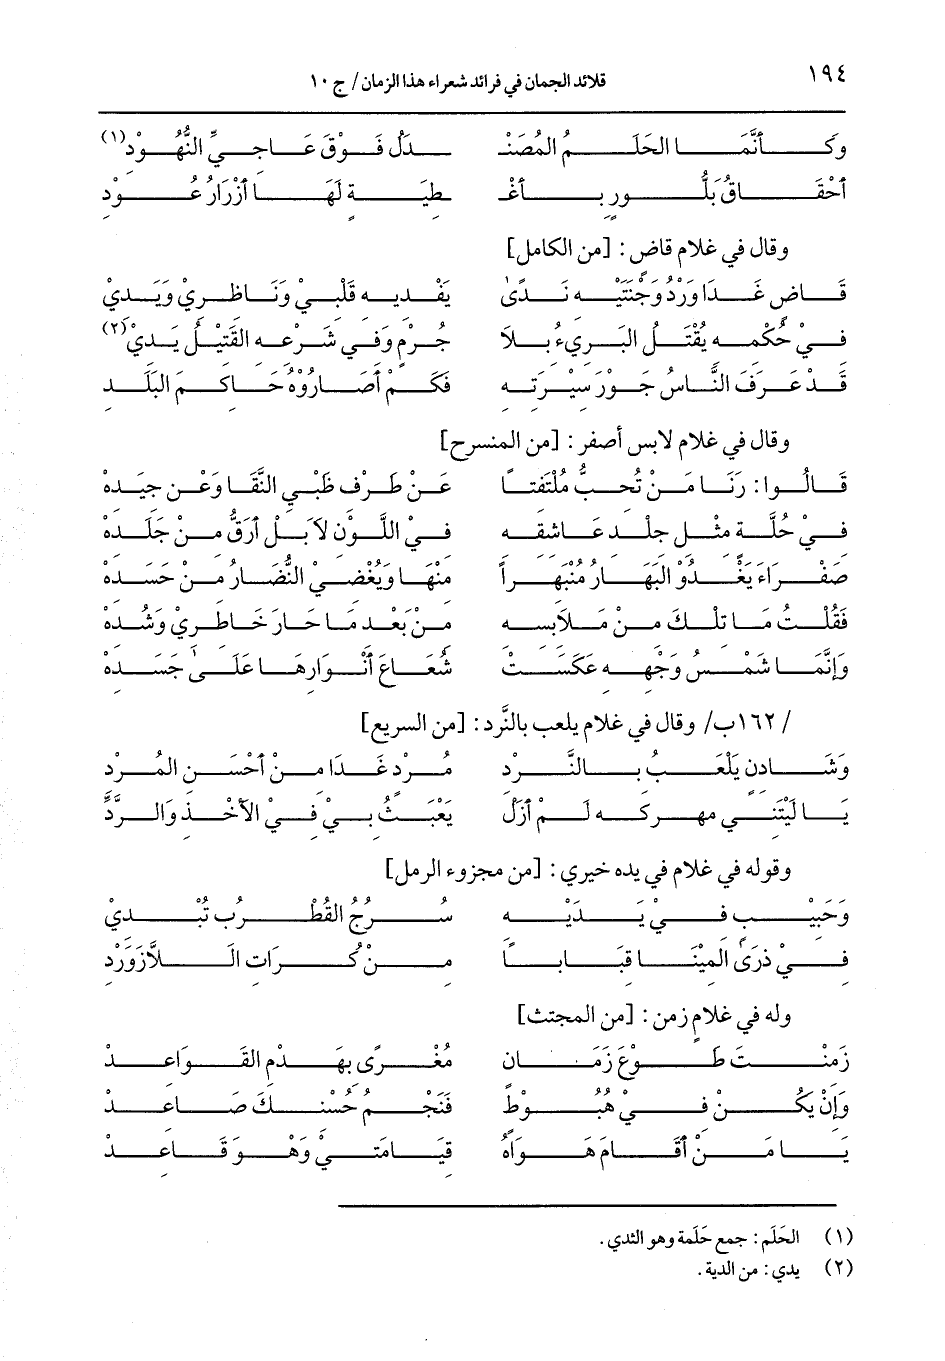 ١٩٤
قلائد الجمان في فرائد شعراء هذا الزمان / ج ١٠
وكَأنَّمَا الحَلَمُ المُصَنْـ ـدَلُ فَوْقَ عَاجيِّ النُّهُوْدِ(١)
أحْقَاقُ بَلُّورٍ بأغْـ ـطيَةٍ لَهَا أزْرَارُ عُوْدِ
وقال في غلام قاض: [من الكامل]
قَاضٍ غَدَا وَرْدُ وَجْنَتَيْهِ نَدًى يَفْديهِ قَلْبيْ وَنَاظريْ وَيَديْ
فيْ حُكْمهِ يُقْتَلُ البَريءُ بلَا جُرْمٍ وَفي شَرْعهِ القَتيْلُ يَديْ(٢)
قَدْ عَرَفَ النَّاسُ جَوْرَ سيْرَتهِ فَكَمْ أصَارُوْهُ حَاكمَ البَلَدِ
وقال في غلام لابس أصفر: [من المنسرح]
قَالُوا: رَنَا مَنْ تُحبُّ مُلْتَفتًا عَنْ طَرْفِ ظَبْي النَّقَا وَعَنْ جيَدهْ
فيْ حُلَّةٍ مثْلِ جلْدِ عَاشقهِ فيْ اللَّوْنِ لاَ بَلْ أرَقُّ منْ جَلَدهْ
صَفْرَاءَ يَغْدُو البَهَارُ مُنْبَهرًا منْهَا وَيُغْضيْ النُّضَارُ منْ حَسَدهْ
فَقُلْتُ مَا تلْكَ منْ مَلاَبسهِ منْ بَعْدِ مَا حَارَ خَاطريْ وَشُدهْ
وَإنَّمَا شَمْسُ وَجْههِ عَكَسَتْ شُعَاعَ أنْوَارهَا عَلَى جَسَدهْ
/١٦٢ب/ وقال في غلام يلعب بالنَّرد: [من السريع]
وَشَادنٍ يَلْعَبُ بالنَّرْدِ مُرْدٍ غَدَا منْ أحْسَنِ المُرْدِ
يَا لَيْتَني مهركه لَمْ أزَلْ يَعْبَثُ بيْ فيْ الأخْذِ وَالرَّدِّ
وقوله في غلام في يده خيري: [من مجزوء الرمل]
وَحَبيْبٍ فيْ يَدَيْهِ سُرُجُ القُطْرُبِ تُبْديْ
فيْ ذرَى المِيْنَا قبَابًا منْ كُرَاتِ اللاَّزوَرْدِ
وله في غلامٍ زمن: [من المجتث]
زَمنْتَ طَوْعَ زَمَانٍ مُغْرًى بهَدْمِ القَوَاعدْ
وَإنْ يَكُنْ فيْ هُبُوْطٍ فَنَجْمُ حُسْنكَ صَاعدْ
يَا مَنْ أقَامَ هَوَاهُ قيَامَتيْ وَهْوَ قَاعدْ
(١) الحَلَم: جمع حَلَمة وهو الثدي.
(٢) يدي: من الدية.